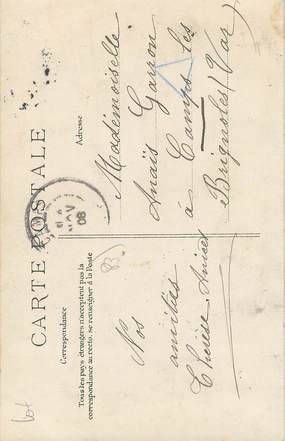 CARTE POSTALE
Correspondance
Tous les pays étrangers n'acceptent pas la
correspondance au recto. se renseigner à la Poste
Nos
amitiés
Thérèse Anicet
Adresse
Mademoiselle
Anaïs Garron
à Camps les
Brignoles (Var)
NOV
08
83